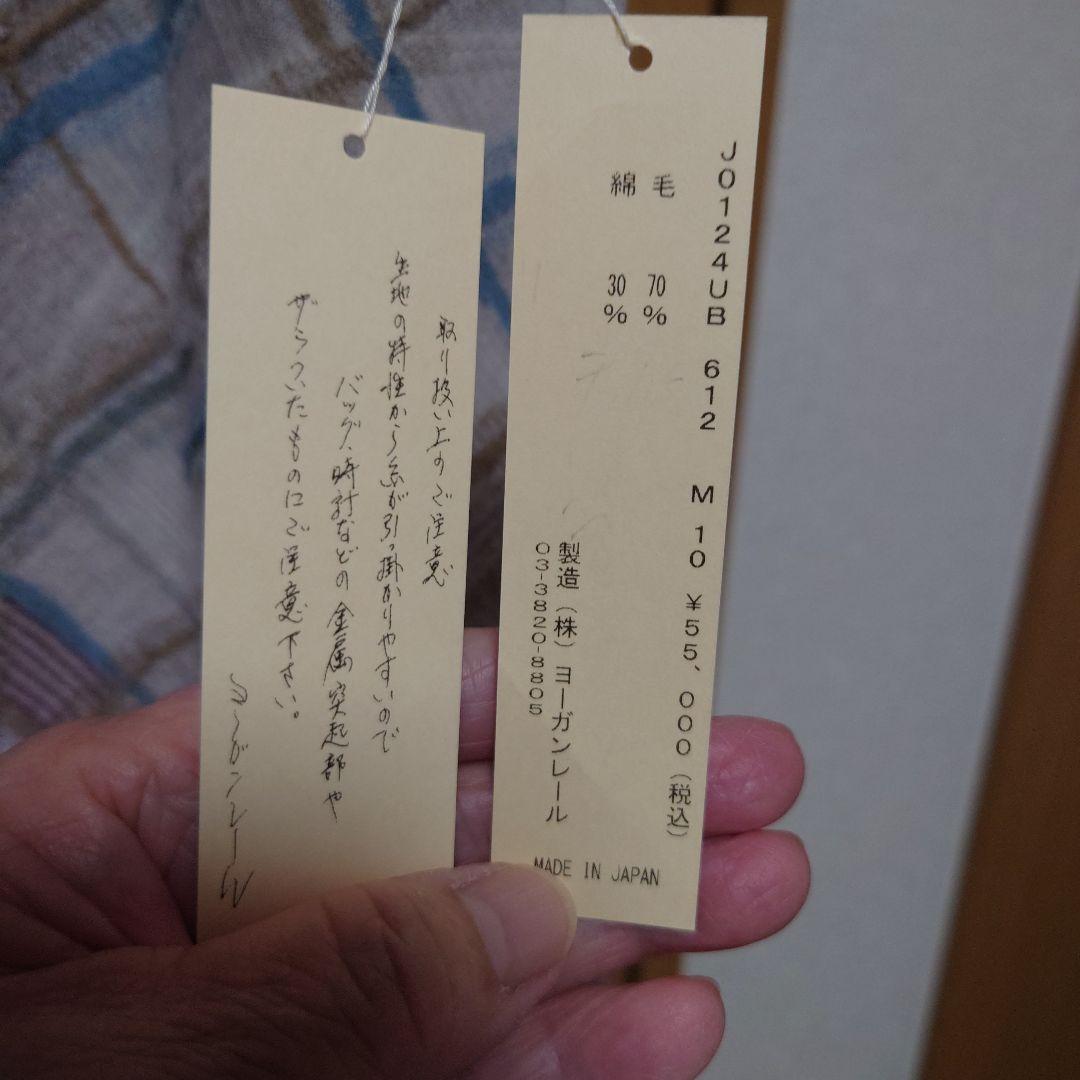 取り扱い上のご注意
生地の特性から糸が引っ掛かりやすいので
バッグ、時計などの金属突起部や
ザラついたものにご注意下さい。
ヨーガンレール
J0124UB 612 M 10 ¥55,000(税込)
毛 70%
綿 30%
製造(株)ヨーガンレール
03-3820-8805
MADE IN JAPAN